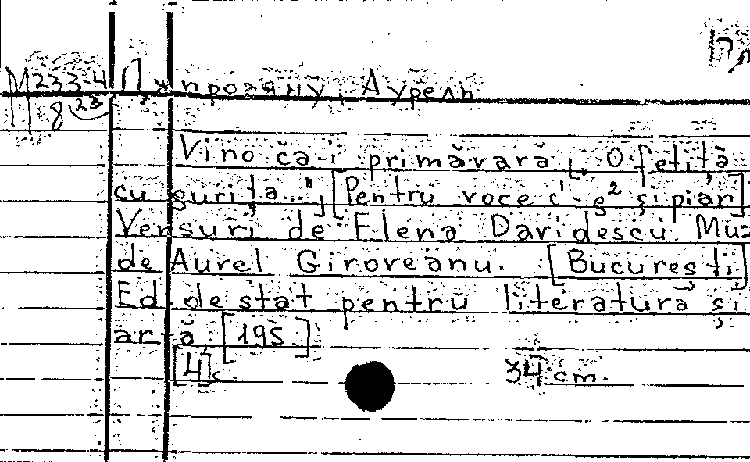 М 233-4 Джировяну, Аурель
8 23
Vino ca-i primăvară [„O fetiță
cu gurița..."], [Pentru voce c-g² și pian]
Versuri de Elena Davidescu. Muz
de Aurel Giroveanu. [București]
Ed de stat pentru literatură și
artă, [195 ]
[4] c. 34 cm.